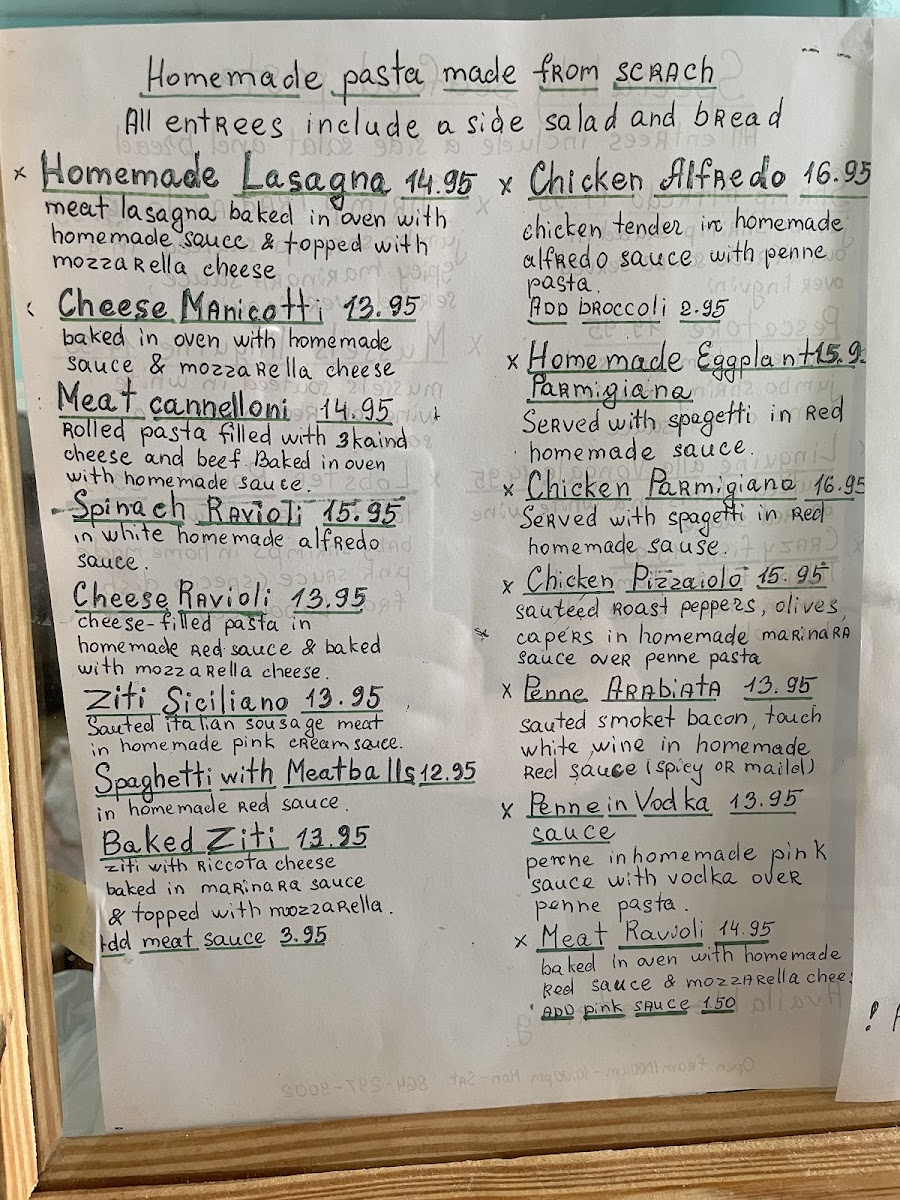 Homemade pasta made from scrach
All entrees include a side salad and bread
x Homemade Lasagna 14.95
meat lasagna baked in oven with
homemade sauce & topped with
mozzarella cheese
Cheese Manicotti 13.95
baked in oven with homemade
sauce & mozzarella cheese
Meat cannelloni 14.95
Rolled pasta filled with 3kaind
cheese and beef. Baked in oven
with homemade sauce.
- Spinach Ravioli 15.95
in white homemade alfredo
sauce.
Cheese Ravioli 13.95
cheese-filled pasta in
homemade red sauce & baked
with mozzarella cheese.
Ziti Siciliano 13.95
Sauted italian sousage meat
in homemade pink cream sauce.
Spaghetti with Meatballs 12.95
in homemade red sauce.
Baked Ziti 13.95
ziti with riccota cheese
baked in marinara sauce
& topped with mozzarella.
dd meat sauce 3.95
x Chicken Alfredo 16.95
chicken tender in homemade
alfredo sauce with penne
pasta.
ADD broccoli 2.95
x Homemade Eggplant 15.9
Parmigiana
Served with spagetti in Red
homemade sauce.
x Chicken Parmigiana 16.95
Served with spagetti in Red
homemade sause.
x Chicken Pizzaiolo 15.95
sauteed roast peppers, olives,
capers in homemade marinara
sauce over penne pasta
x Penne Arabiata 13.95
sauted smoket bacon, touch
white wine in homemade
Red sauce (spicy or maild)
x Penne in Vodka 13.95
sauce
penne in homemade pink
sauce with vodka over
penne pasta.
x Meat Ravioli 14.95
baked in oven with homemade
Red sauce & mozzarella chee
ADD pink sauce 1.50